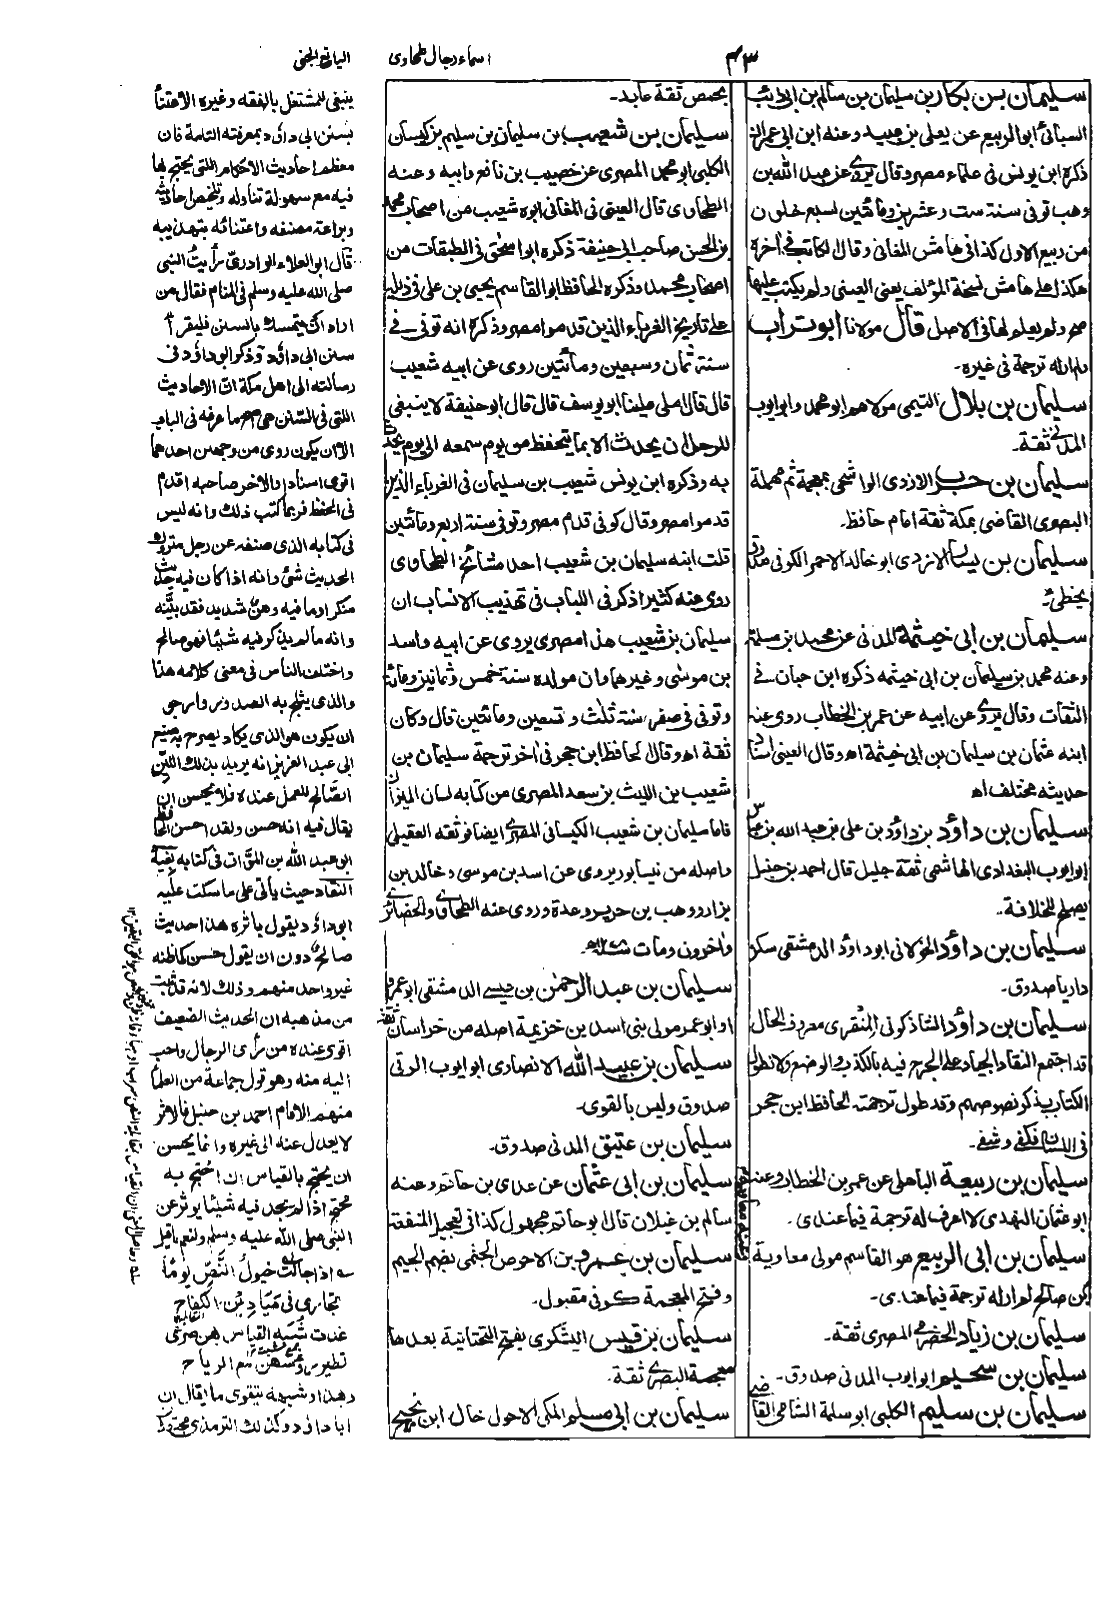 ٤٣
اسماء رجال طحاوی
اليانع الجنی
سليمان بن بكار بن سليمان بن سالم بن ابی ذئب
السبائی ابو الربيع عن يعلى بن عبيد وعنه ابن ابی عمران
ذكره ابن يونس فی علماء مصر وقال يروی عن عبد الله بن
وهب توفی سنة ست وعشرين ومائتين لسبع خلون
من ربيع الاول كذا فی هامش المغانی وقال الكاتب فی اٰخره
هكذا علے هامش نسخة المؤلف يعنی العينی ولم يكتب عليها
صح ولم يعلم لها فی الاصل قال مولانا ابو تراب
لم ار له ترجمة فی غيره۔
سليمان بن بلال التيمی مولاهم ابو محمد وابو ايوب
المدنی ثقة۔
سليمان بن حرب الازدی الواشحی بمعجمة ثم مهملة
البصری القاضی بمكة ثقة امام حافظ۔
سليمان بن الازدی ابو خالد الاحمر الكوفی صدوق
يخطئ۔
سليمان بن ابی خيثمة المدنی عن محمد بن مسلمة
وعنه محمد بن سليمان بن ابی خيثمه ذكره ابن حبان فے
الثقات وقال يروی عن ابيه عن عمر بن الخطاب روی عنه
ابنه عثمان بن سليمان بن ابی خيثمة اھ وقال العينی اسناد
حديثه مختلف اھ
سليمان بن داؤد بن داؤد بن علی بن عبد الله بن عباس
ابو ايوب البغدادی الهاشمی ثقة جليل قال احمد بن حنبل
يصلح للخلافة۔
سليمان بن داؤد الخولانی ابو داؤد الدمشقی سكن
داريا صدوق۔
سليمان بن داؤد الشاذكونی المنقری معروف الحال
قد اجتمع النقاد الجهاد علے الجرح فيه بالكذب والوضع ولا نطول
الكتاب بذكر نصوصهم وقد طول ترجمته الحافظ ابن حجر
فی اللسان فكفی وشفی۔
سليمان بن ربيعة الباهلی عن عمر بن الخطاب وعنه
ابو عثمان النهدی لا اعرف له ترجمة فيما عندی۔
سليمان بن ابی الربيع هو القاسم مولى معاوية
بن صالح لم ار له ترجمة فيما عندی۔
سليمان بن زياد الحضرمی المصری ثقة۔
سليمان بن سحيم ابو ايوب المدنی صدوق۔
سليمان بن سليم الكلبی ابو سلمة الشامی القاضی
بحمص ثقة عابد۔
سليمان بن شعيب بن سليمان بن سليم بن كيسان
الكلبی ابو محمد المصری عن خصيب بن نافع وابيه وعنه
الطحاوی قال العينی فی المغانی ابوه شعيب من اصحاب محمد
بن الحسن صاحب ابی حنيفة ذكره ابو اسحٰق فی الطبقات من
اصحاب محمد وذكره الحافظ ابو القاسم يحيى بن علی فی ذيله
علے تاريخ الغرباء الذين قدموا مصر وذكره انه توفی فے
سنة ثمان وسبعين ومائتين روی عن ابيه شعيب
قال قال املى علينا ابو يوسف قال قال ابو حنيفة لا ينبغی
للرجل ان يحدث الا بما يتحفظ من يوم سمعه الی يوم يحدث
به وذكره ابن يونس شعيب بن سليمان فی الغرباء الذين
قدموا مصر وقال كوفی قدم مصر وتوفی سنة اربع ومائتين
قلت ابنه سليمان بن شعيب احد مشائخ الطحاوی
روی عنه كثيرا ذكر فی اللباب فی تهذيب الانساب ان
سليمان بن شعيب هذا مصری يروی عن ابيه واسد
بن موسٰی وغيرهما وان مولده سنة خمس وثمانين ومائة
وتوفی فی صفر سنة ثلٰث وتسعين ومائتين قال وكان
ثقة اھ وقال الحافظ ابن حجر فی اٰخر ترجمة سليمان بن
شعيب بن الليث بن سعد المصری من كتابه لسان الميزان
فاما سليمان بن شعيب الكيسانی المصری ايضا فوثقه العقيلی
واصله من نيسابور يروی عن اسد بن موسی وخالد بن
بزار ووهب بن جرير وعدة وروی عنه الطحاوی والحضائری
واٰخرون ومات
سليمان بن عبد الرحمٰن بن عيسی الدمشقی ابو عمر
او ابو عمرو مولى بنی اسد بن خزيمة اصله من خراسان
سليمان بن عبيد الله الانصاری ابو ايوب الرقی
صدوق وليس بالقوی۔
سليمان بن عتيق المدنی صدوق۔
سليمان بن ابی عثمان عن عدی بن حاتم وعنه
سالم بن غيلان قال ابو حاتم مجهول كذا فی تعجيل المنفعة
سليمان بن عمرو بن الاحوص الجشمی بضم الجيم
وفتح المعجمة كوفی مقبول۔
سليمان بن قيس اليشكری بفتح التحتانية بعدها
معجمة البصری ثقة۔
سليمان بن ابی مسلم المكی الاحول خال ابن نجيح
ينبغی للمشتغل بالفقه وغيره الاعتناء
بسنن ابی داؤد وبمعرفته التامة فان
معظم احاديث الاحكام اللتی يحتج بها
فيه مع سهولة تناوله وتلخيص احاديثه
وبراعة مصنفه واعتنائه بتهذيبه
قال ابو العلاء الوادری رأيت النبی
صلی الله عليه وسلم فی المنام فقال من
اراد ان يتمسك بالسنن فليقرأ
سنن ابی داؤد وذكر ابو داؤد فی
رسالته الی اهل مكة ان الاحاديث
اللتی فی السنن هی اصح ما عرفه فی الباب
الا ان يكون روی من وجهين احدهما
اقوی اسنادا والاٰخر صاحبه اقدم
فی الحفظ فربما كتب ذلك وانه ليس
فی كتابه الذی صنفه عن رجل متروك
الحديث شئ وانه اذا كان فيه حديث
منكر او ما فيه وهن شديد فقد بيّنه
وانه ما لم يذكر فيه شيئا فهو صالح
واختلف الناس فی معنی كلامه هذا
والذی يثلج به الصدور وارجو
ان يكون هو الذی يكاد يصرح به صنيع
ابی عبد العزيز انه يريد بذلك اللين
الصالح للعمل عنده فلا يحسن ان
يقال فيه انه حسن ولقد احسن الحافظ
ابو عبد الله بن المواق فی كتابه بغية
النقاد حيث يأتی علی ما سكت عليه
ابو داؤد يقول باثره هذا حديث
صالح دون ان يقول حسن كما ظنه
غير واحد منهم وذلك لانه قد ثبت
من مذهبه ان الحديث الضعيف
اقوی عنده من رأی الرجال واحب
اليه منه وهو قول جماعة من العلماء
منهم الامام احمد بن حنبل فالاثر
لا يعدل عنه الی غيره وانما يحسن
ان يحتج بالقياس ان احتج به
محتج اذا لم يجد فيه شيئا يؤثر عن
النبی صلی الله عليه وسلم ولنعم ما قيل
سه اذا جالت خيول النص يوما
تجاری فی ميادين الكفاح
غدت شبه القياس بهن صرعی
تطير رؤسهن مع الرياح
وهذا وشبهه يتقوی ما يقال ان
ابا داؤد وكذلك الترمذی